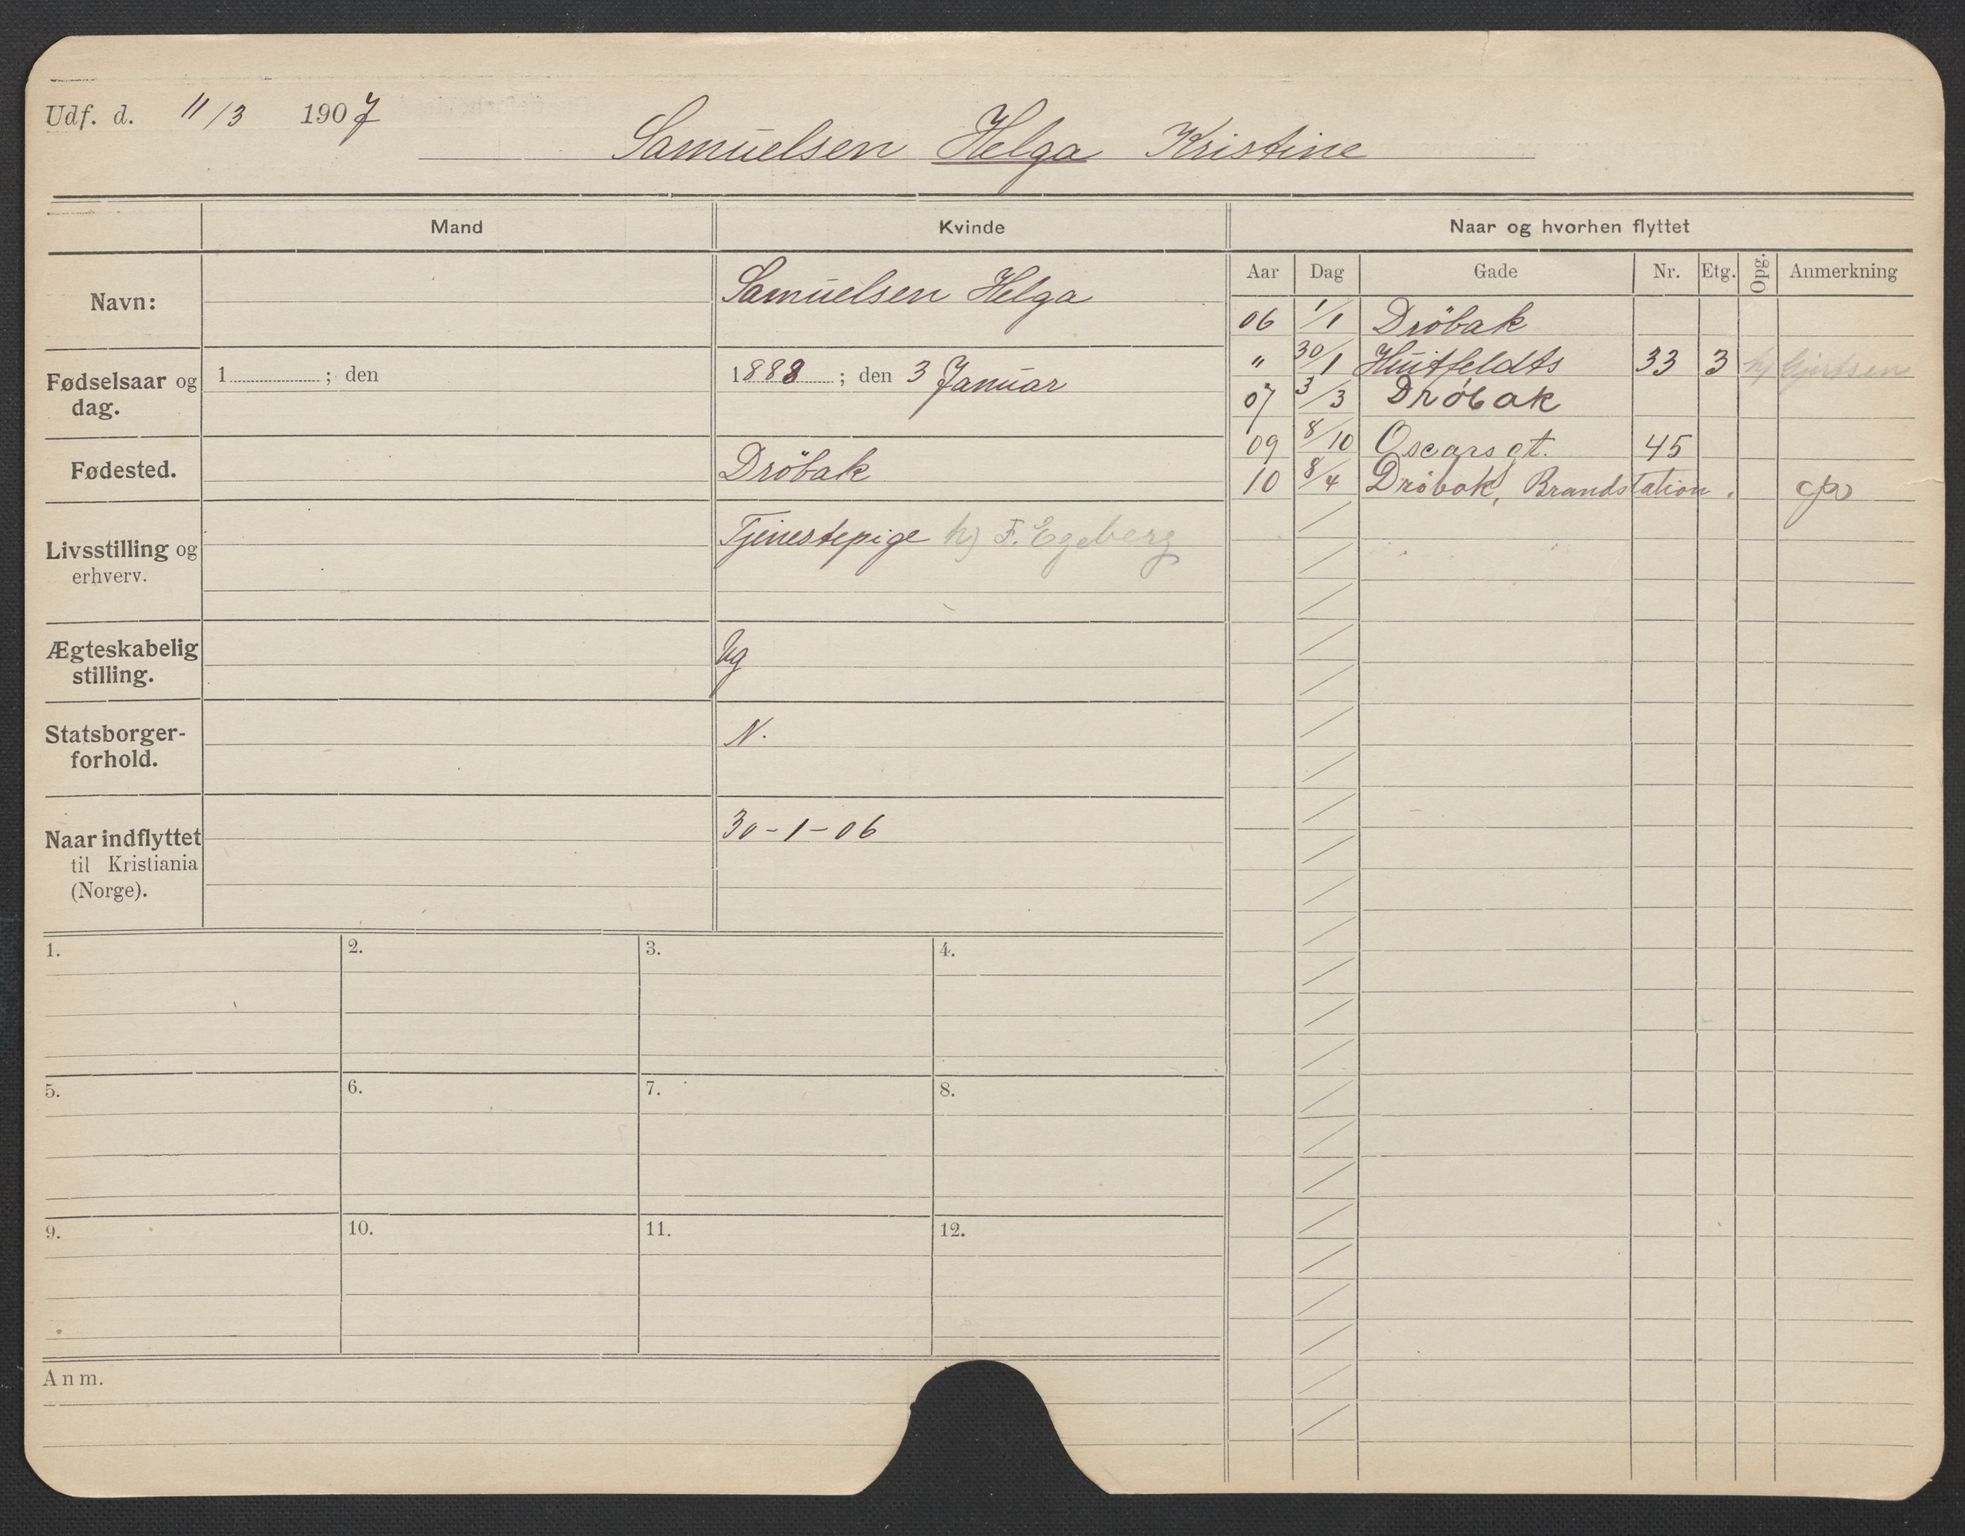 Udf. d. 11/3 1907
Samuelsen Helga Kristine
Mand Kvinde Naar og hvorhen flyttet
Aar Dag Gade Nr. Etg. Opg. Anmerkning
Navn: Samuelsen Helga
Fødselsaar og dag. 1 ; den 1888 ; den 3 Januar
Fødested. Dröbak
Livsstilling og erhverv. Tjenestepige hj F. Egeberg
Ægteskabelig stilling. Ug
Statsborgerforhold. N.
Naar indflyttet til Kristiania (Norge). 30-1-06
06 1/1 Dröbak
" 30/1 Huitfeldts 33 3 hj Gjertsen
07 3/3 Drøbak
09 8/10 Oscarsgt. 45
10 8/4 Drøbak, Brandstation.
1. 2. 3. 4.
5. 6. 7. 8.
9. 10. 11. 12.
Anm.